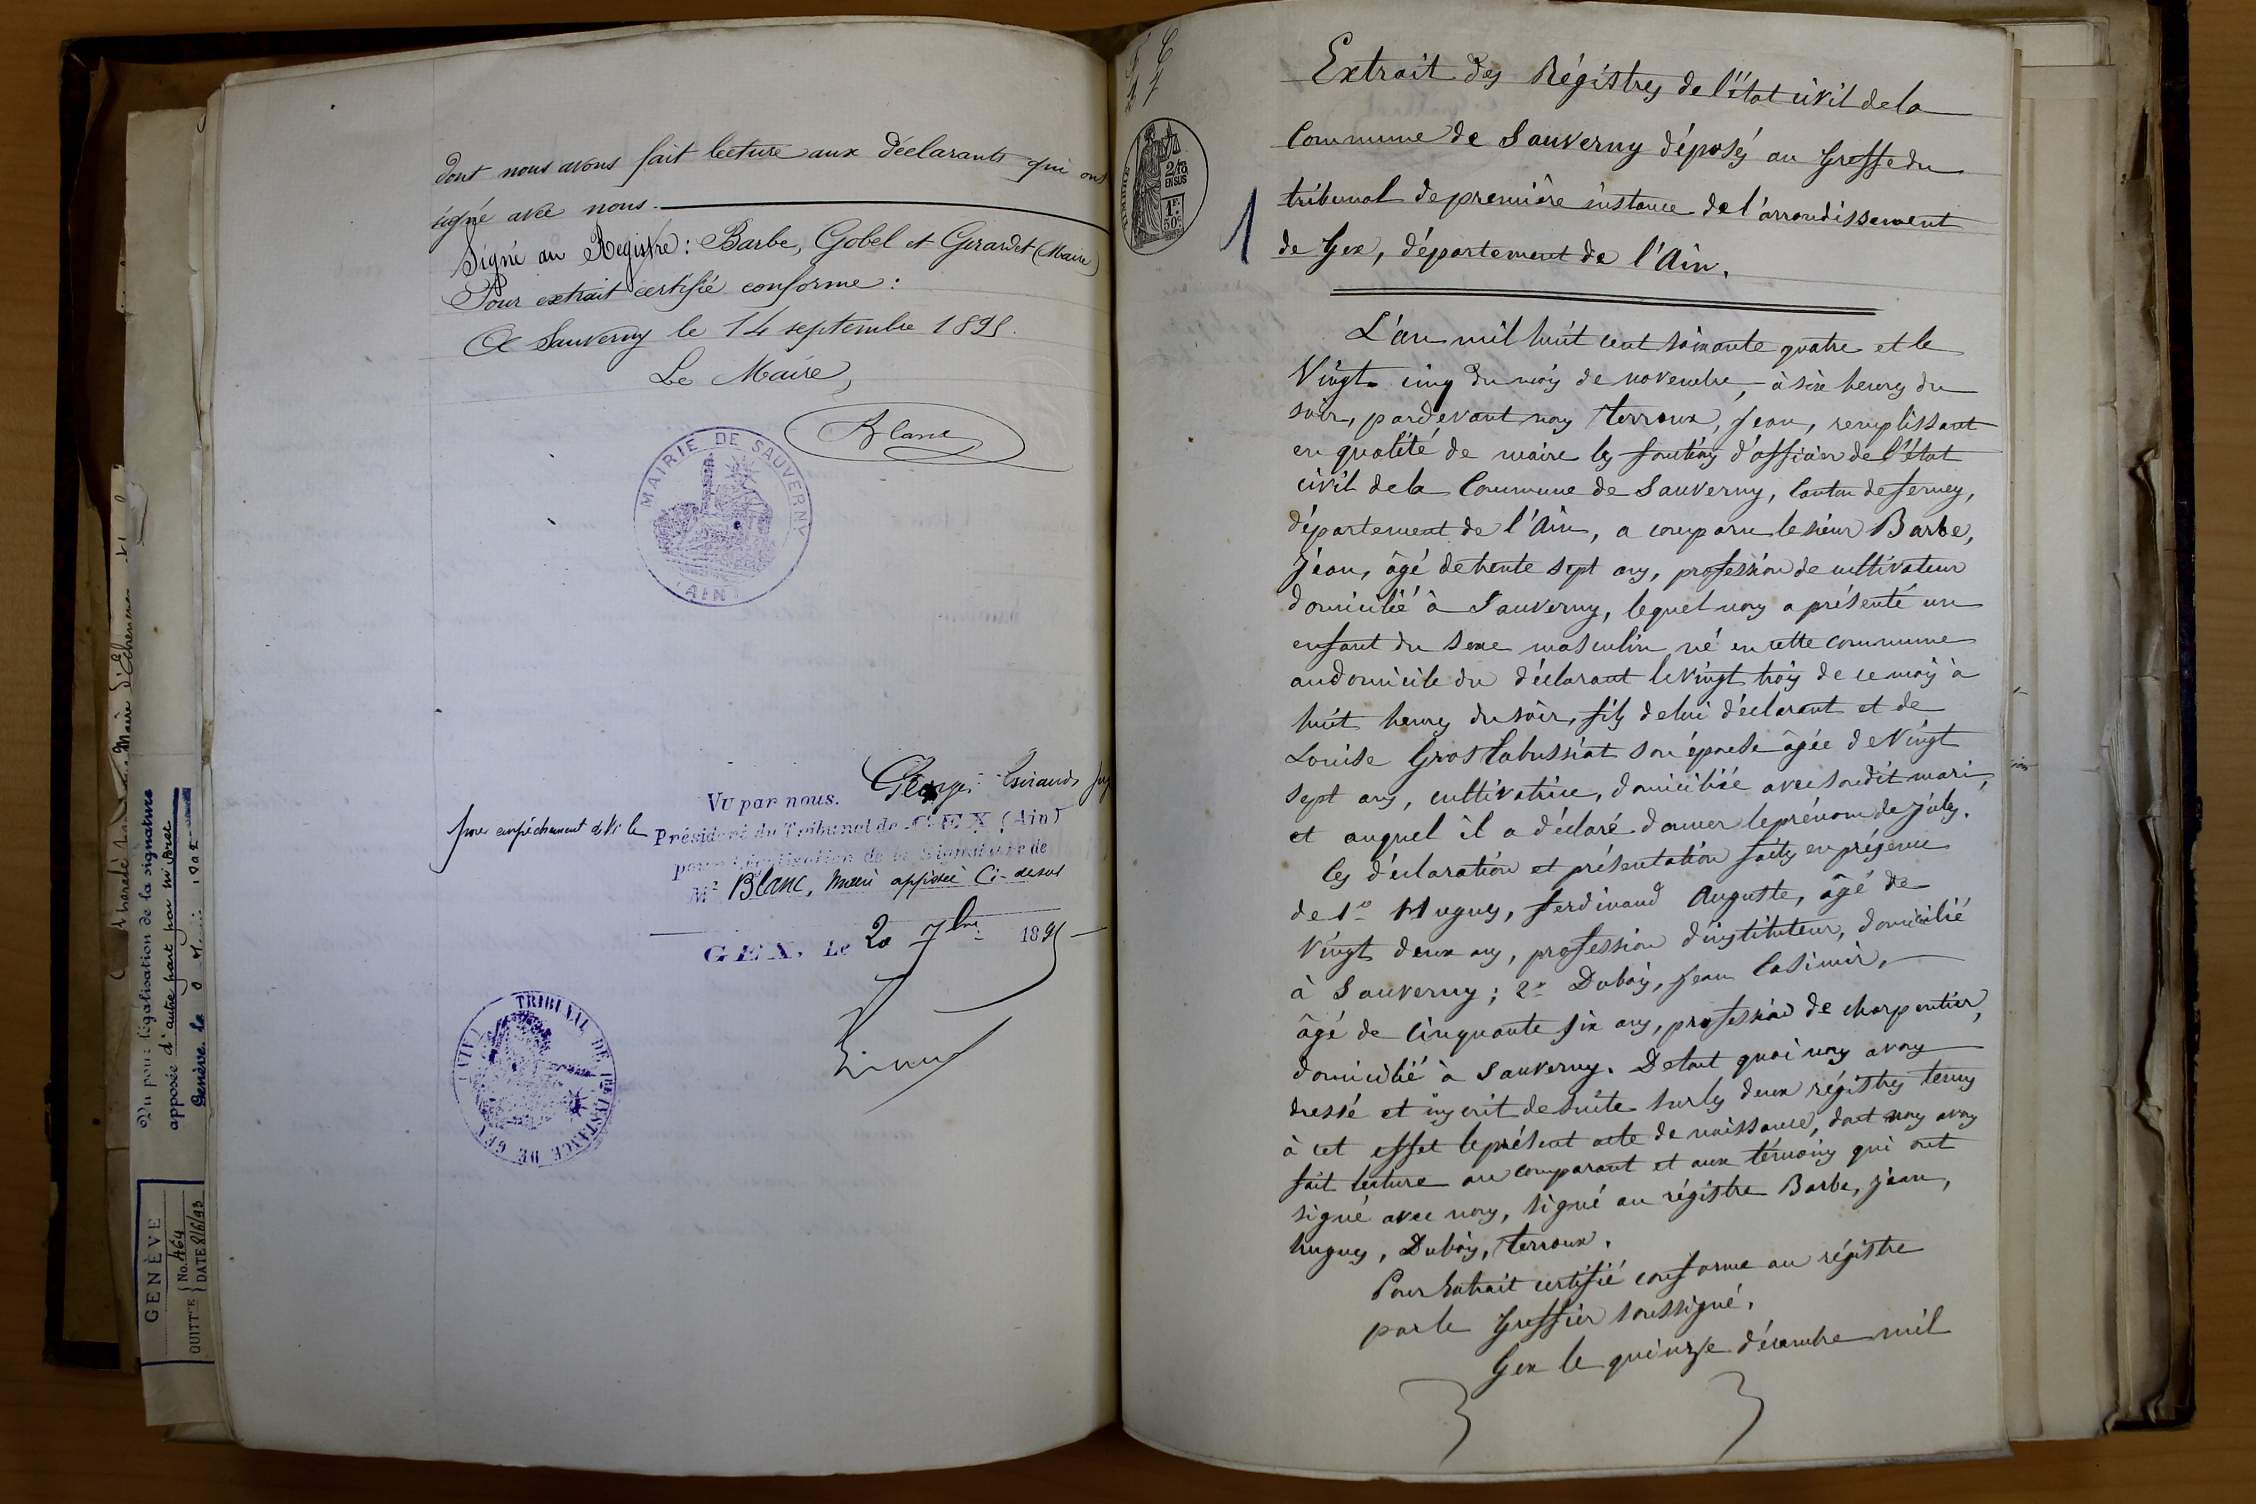 dont nous avons fait lecture aux déclarants qui ont
signé avec nous.
Signé au Registre : Barbe, Gobel et Girardet (Maire)
Pour extrait certifié conforme :
A Sauverny le 14 septembre 1895.
Le Maire,
Blanc
MAIRIE DE SAUVERNY
(AIN)
Vu par nous. George Girard, Jug
pour empêchement de Mr le Président du Tribunal de GEX (Ain)
pour légalisation de la signature de
Mr Blanc, maire apposée Ci-dessus
GEX, Le 20 7bre 1895
TRIBUNAL DE 1RE INSTANCE DE GEX (AIN)
Maire d'Echenevex
Vu pour légalisation de la signature
apposée d'autre part par Mr
Genève, le
GENÈVE
No. 464
QUITTCE DATE 8/6/93
TIMBRE
2/10 EN SUS
1F. 50C.
1
Extrait des Régistres de l'état civil de la
Commune de Sauverny déposés au Greffe du
tribunal de première instance de l'arrondissement
de Gex, département de l'Ain.
L'an mil huit cent soixante quatre et le
Vingt cinq du mois de novembre, à six heures du
soir, pardevant nous Terroux, Jean, remplissant
en qualité de maire les fontions d'officier de l'état
civil de la Commune de Sauverny, Canton de ferney,
département de l'Ain, a comparu le sieur Barbe,
Jean, âgé de trente sept ans, profession de cultivateur
domicilié à Sauverny, lequel nous a présenté un
enfant du sexe masculin né en cette commune
au domicile du déclarant le vingt trois de ce mois à
huit heures du soir, fils de lui déclarant et de
Louise Gros tabussiat son épouse âgée de Vingt
sept ans, cultivatrice, domiciliée avec sondit mari,
et auquel il a déclaré donner le prénom de Jules.
Ces déclaration et présentation faites en présence
de 1o Hugues, ferdinand Auguste, âgé de
Vingt deux ans, profession d'instituteur, domicilié
à Sauverny ; 2o Dubois, Jean Casimir,
âgé de Cinquante six ans, profession de charpentier,
domicilié à Sauverny. De tout quoi nous avons
dressé et inscrit de suite sur les deux régistres tenus
à cet effet le présent acte de naissance, dont nous avons
fait lecture au comparant et aux témoins qui ont
signé avec nous, signé au régistre Barbe, Jean,
hugues, Dubois, Terroux.
Pour Extrait certifié conforme au régistre
par le Greffier soussigné.
Gex le quinze décembre mil